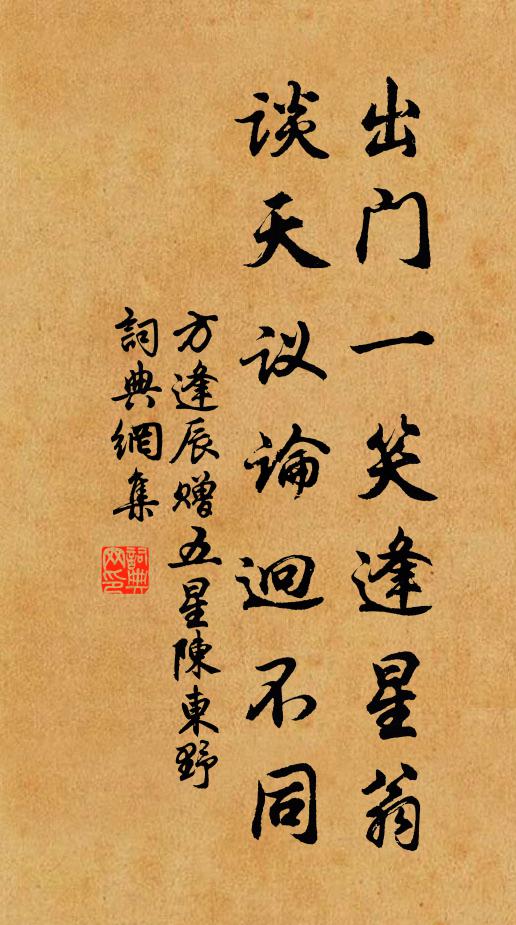 出门一笑逢星翁
谈天议论迥不同
方逢辰赠五星陳東野
詞典網集
詞典
网印